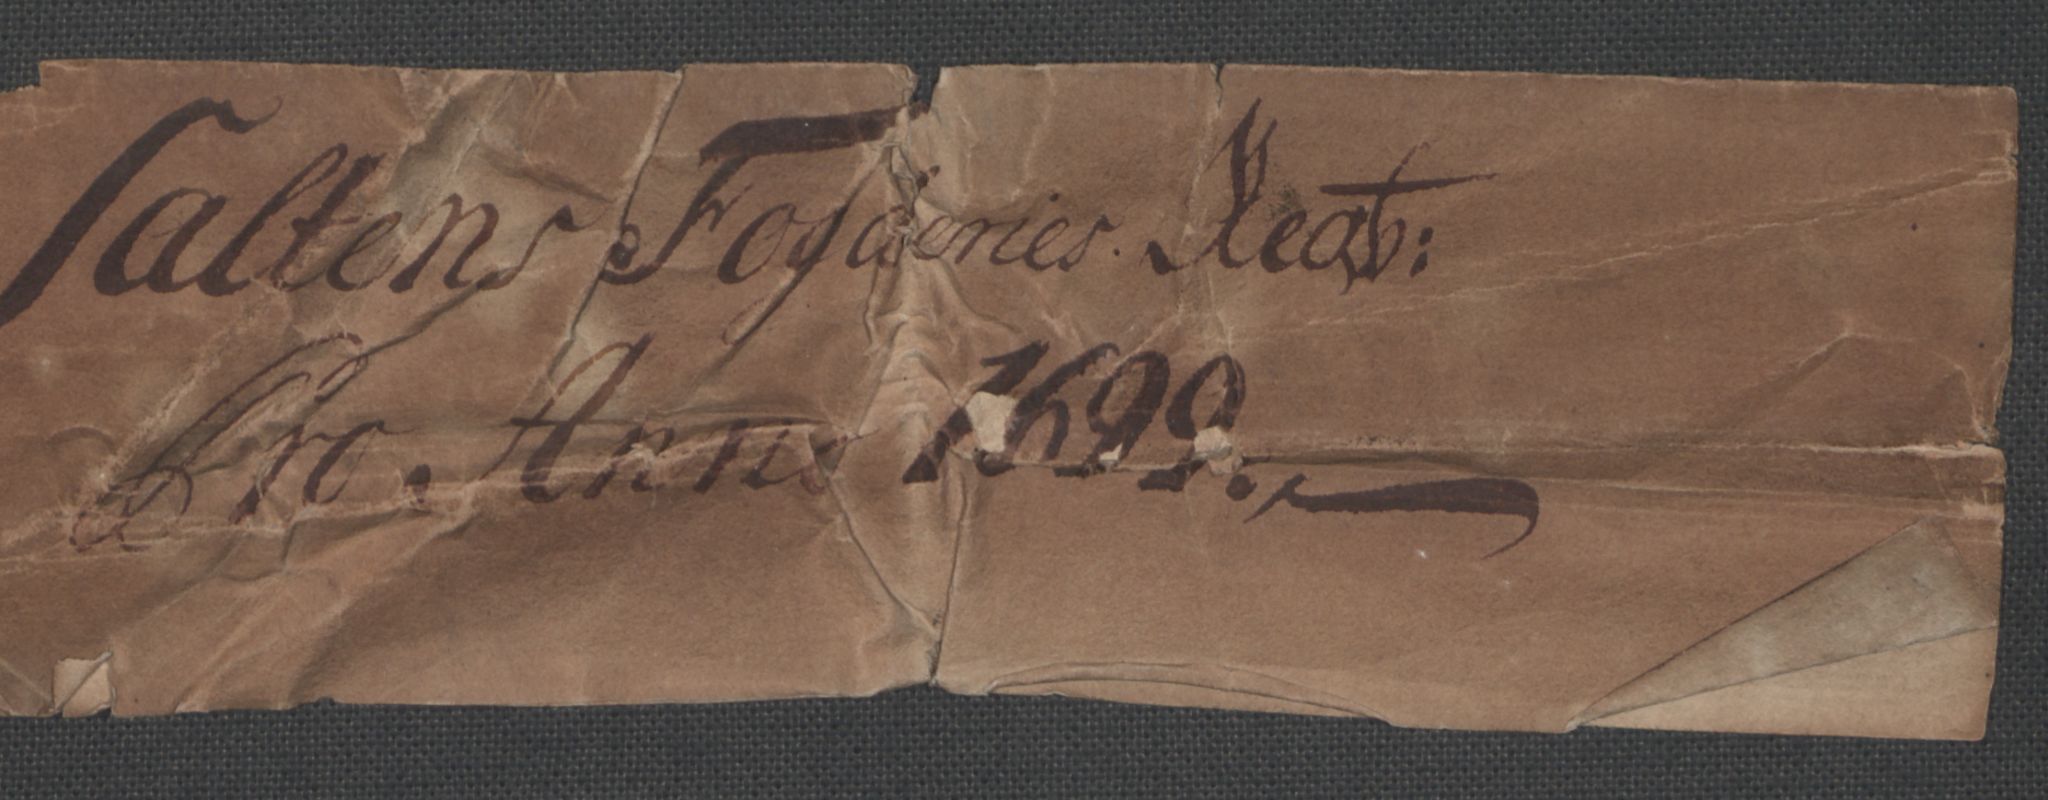 Saltens Fogderies Regb:
Pro Anno 1699.